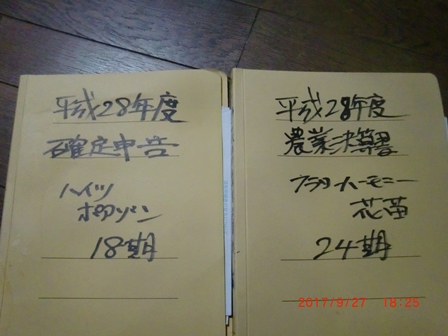 平成28年度
確定申告
ハイツ
18期
平成28年度
農業決算書
フラワーハーモニー
花苗
24期
2017/9/27 18:25